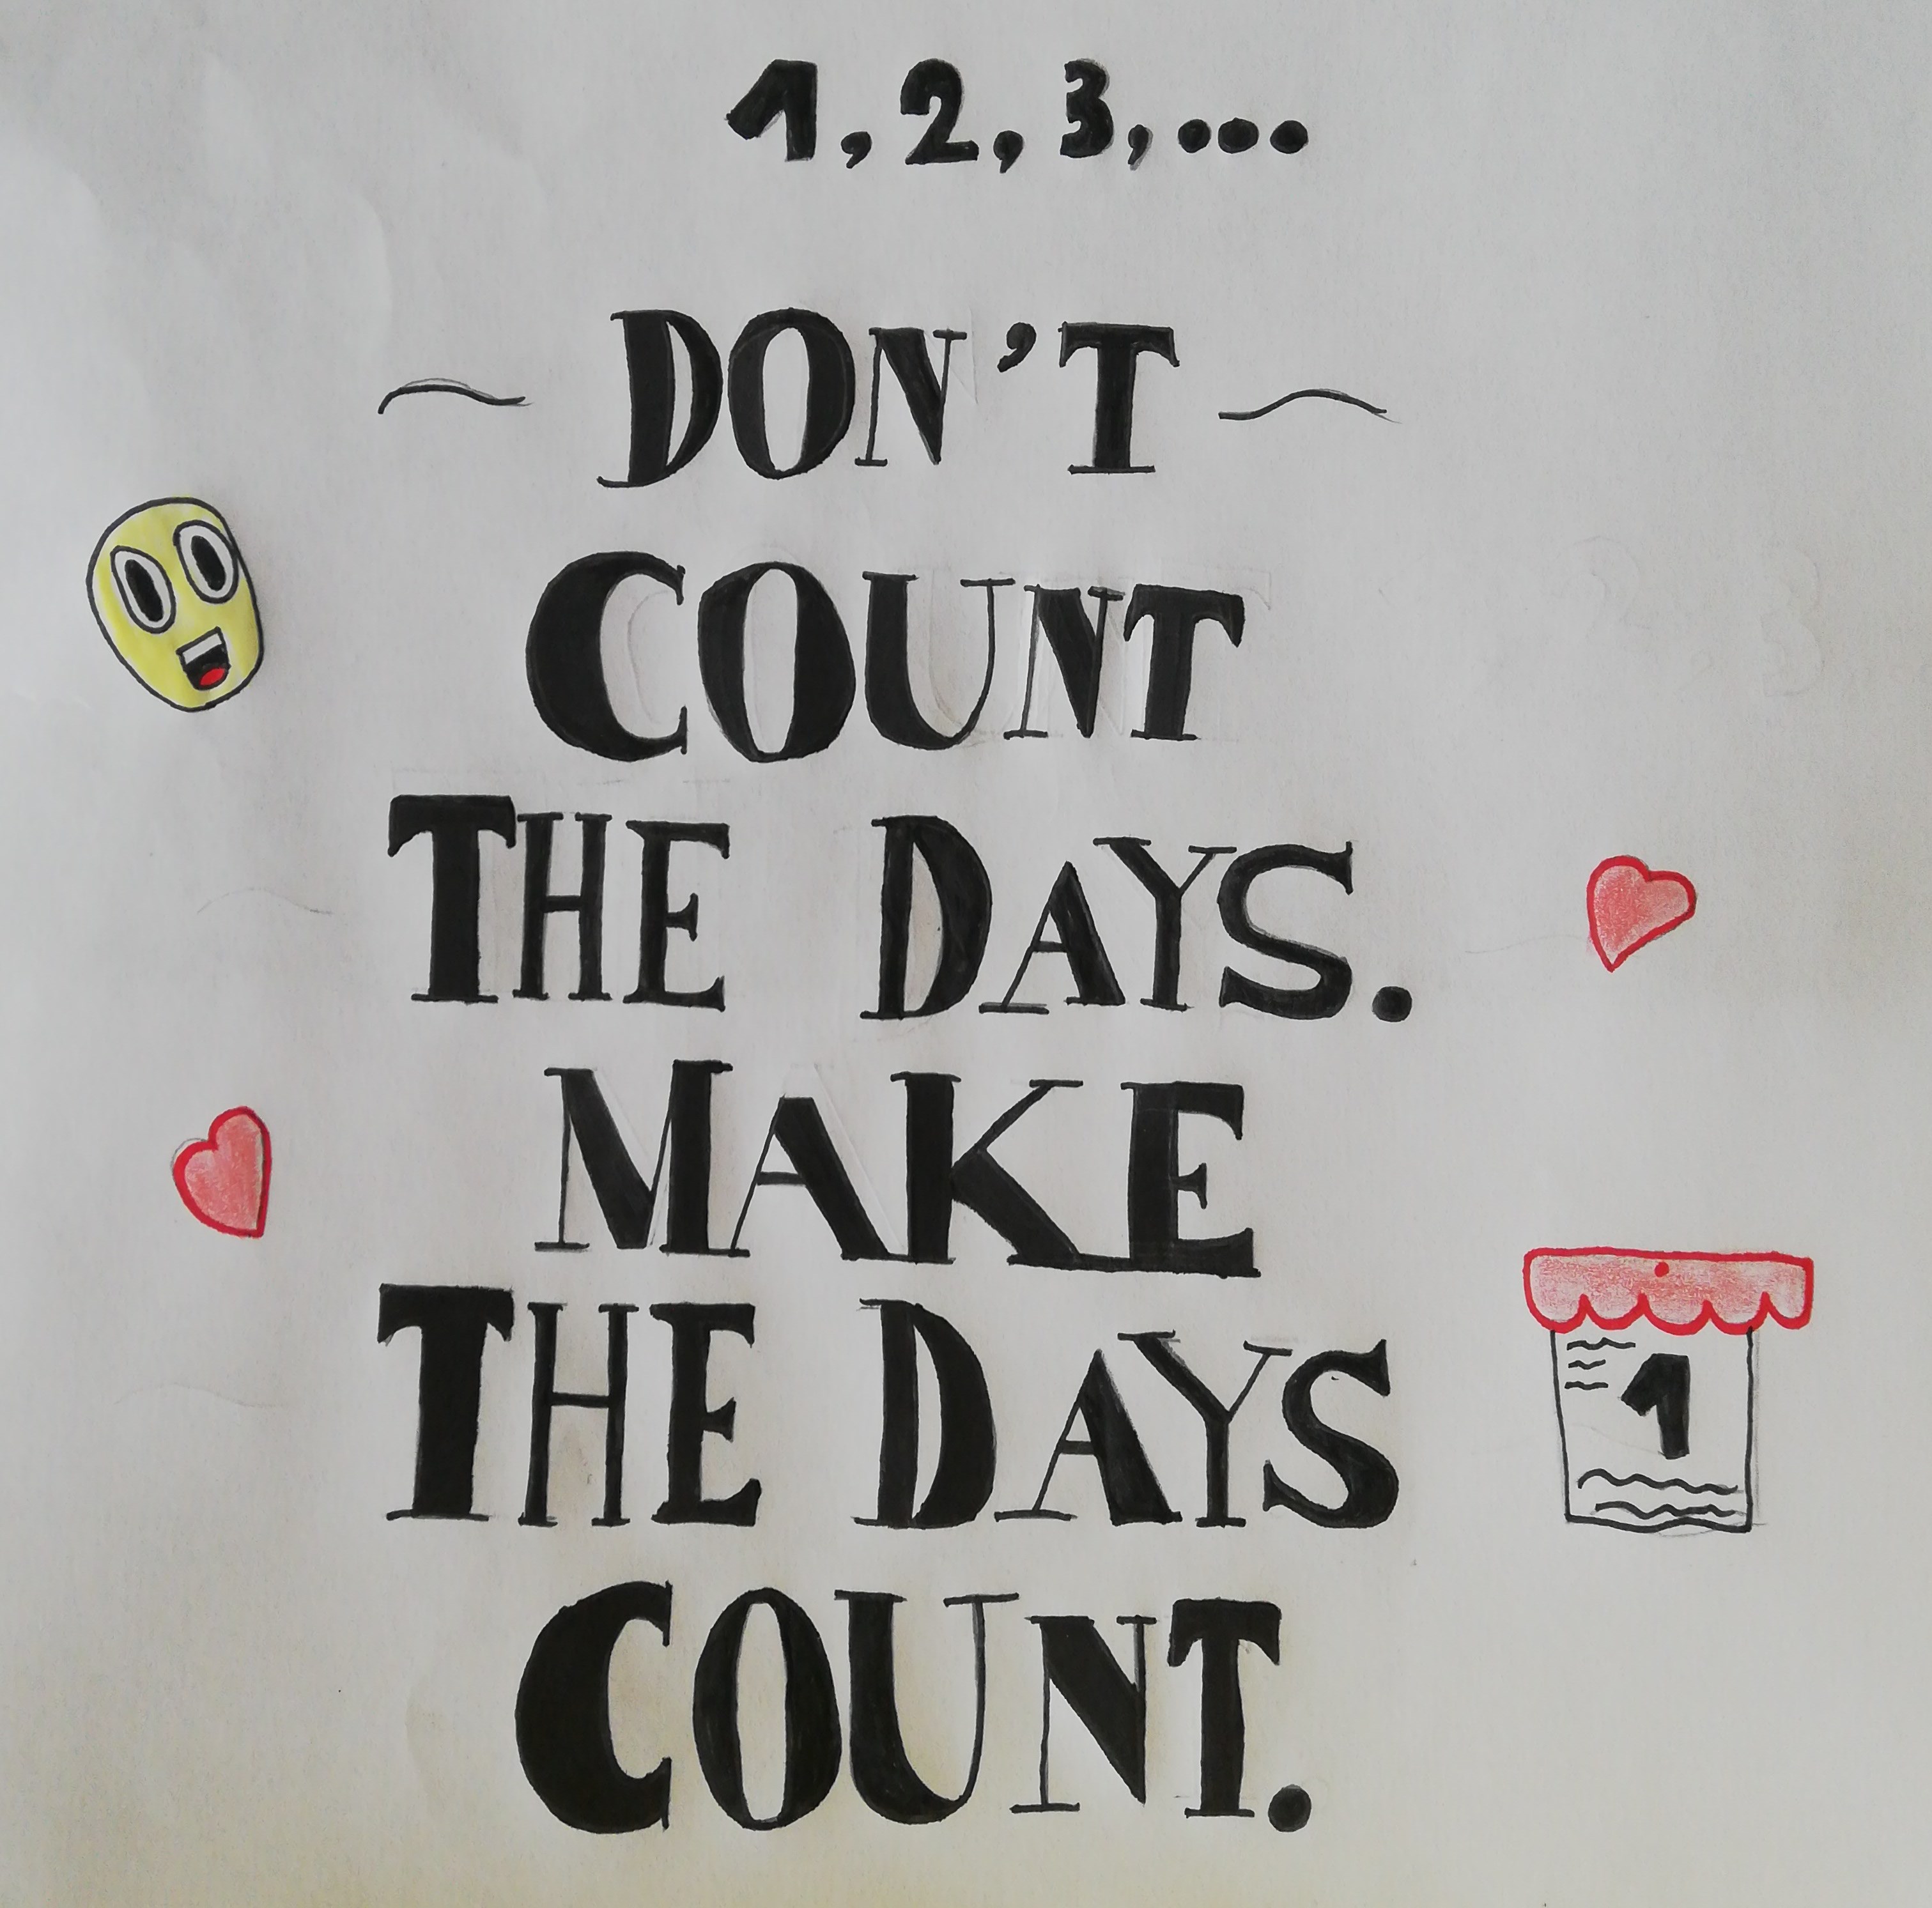 1, 2, 3, ...
~ DON'T ~
COUNT
THE DAYS.
MAKE
THE DAYS
COUNT.
1